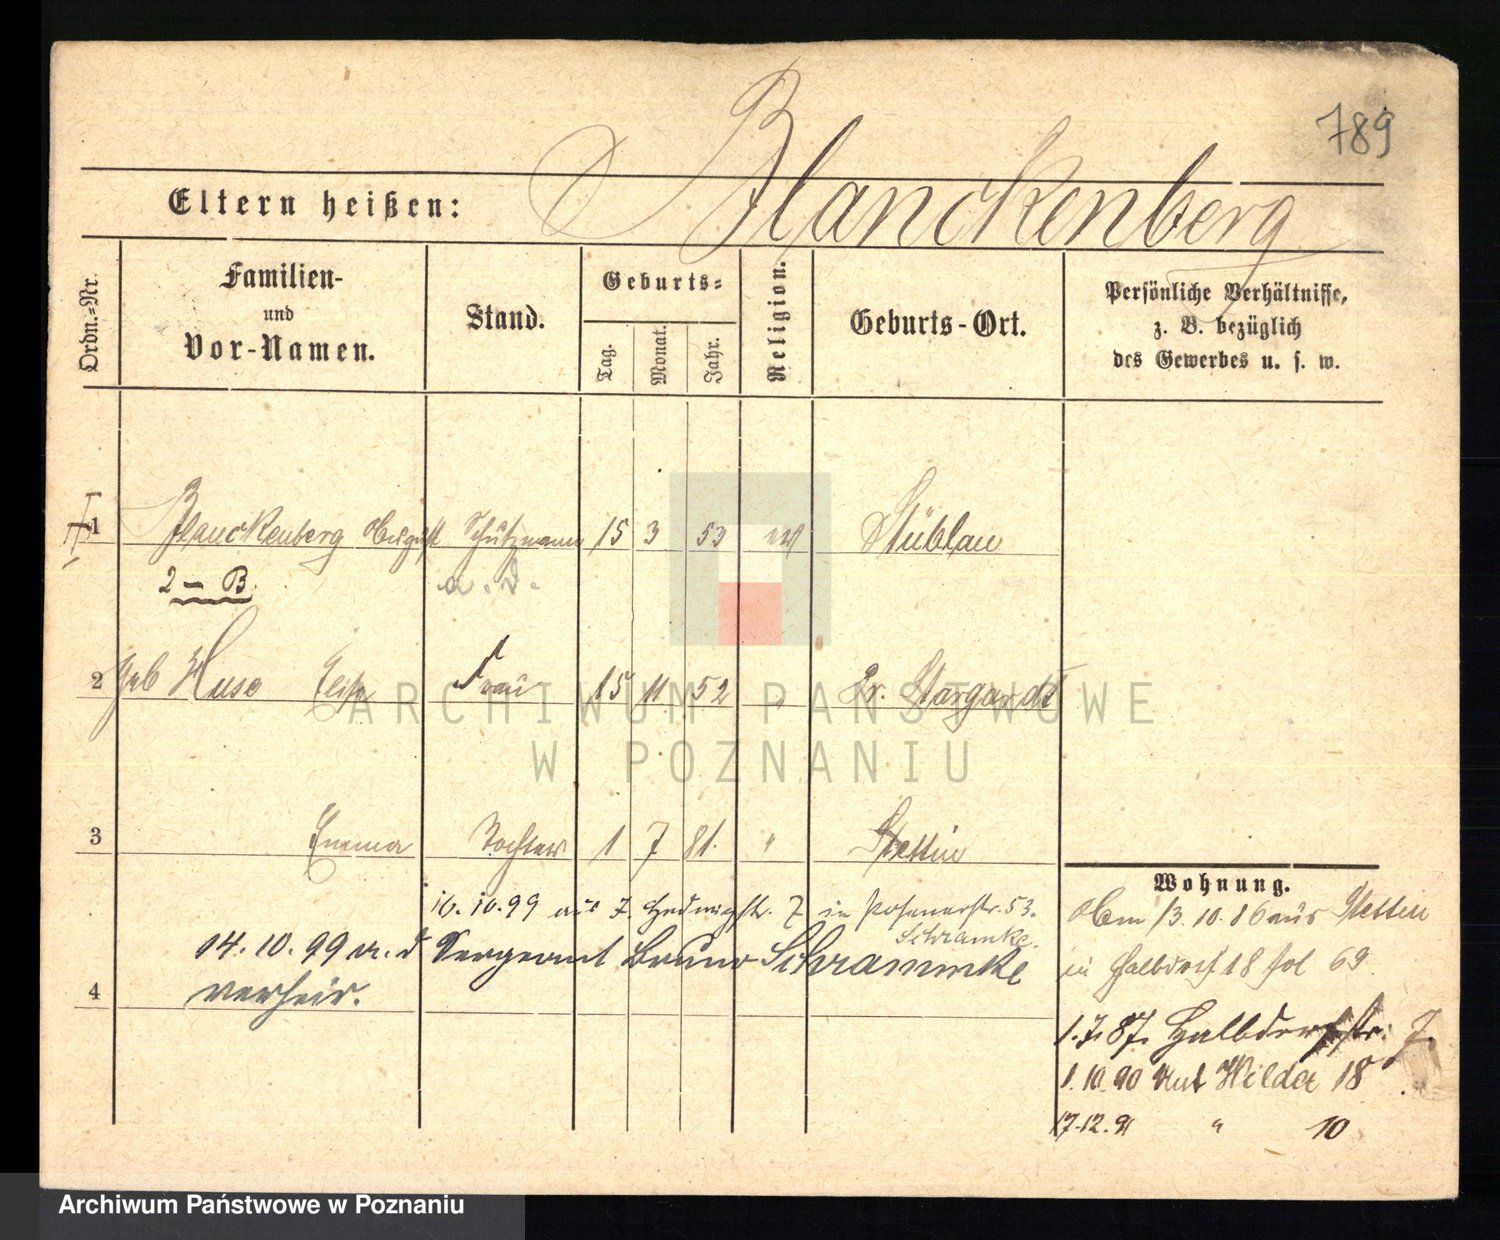 789
Eltern heißen: Blanckenberg
Ordn.-Nr.
Familien-
und
Vor-Namen.
Stand.
Geburts-
Tag.
Monat.
Jahr.
Religion.
Geburts-Ort.
Persönliche Verhältnisse,
z. B. bezüglich
des Gewerbes u. s. w.
1 Blanckenberg August Schutzmann 15 3 53 ev Stüblau
2 - B. a. D.
2 geb Huse Elise Frau 15 11 52 " Pr. Stargardt
ARCHIWUM PAŃSTWOWE
W POZNANIU
3 Emma Tochter 1 7 81. " Stettin
10.10.99 aus 7. Hedwigstr. 7 in Posenerstr. 53.
Schramke.
14.10.99 a. d Sergeant Bruno Schrammke
4 verheir.
Wohnung.
Am 13.10.86 aus Stettin
in Halbdorf 18 fol 69
1.7.87. Halbdorfstr. 7.
1.10.90 Wilda 18
17.12.91 " 10
Archiwum Państwowe w Poznaniu